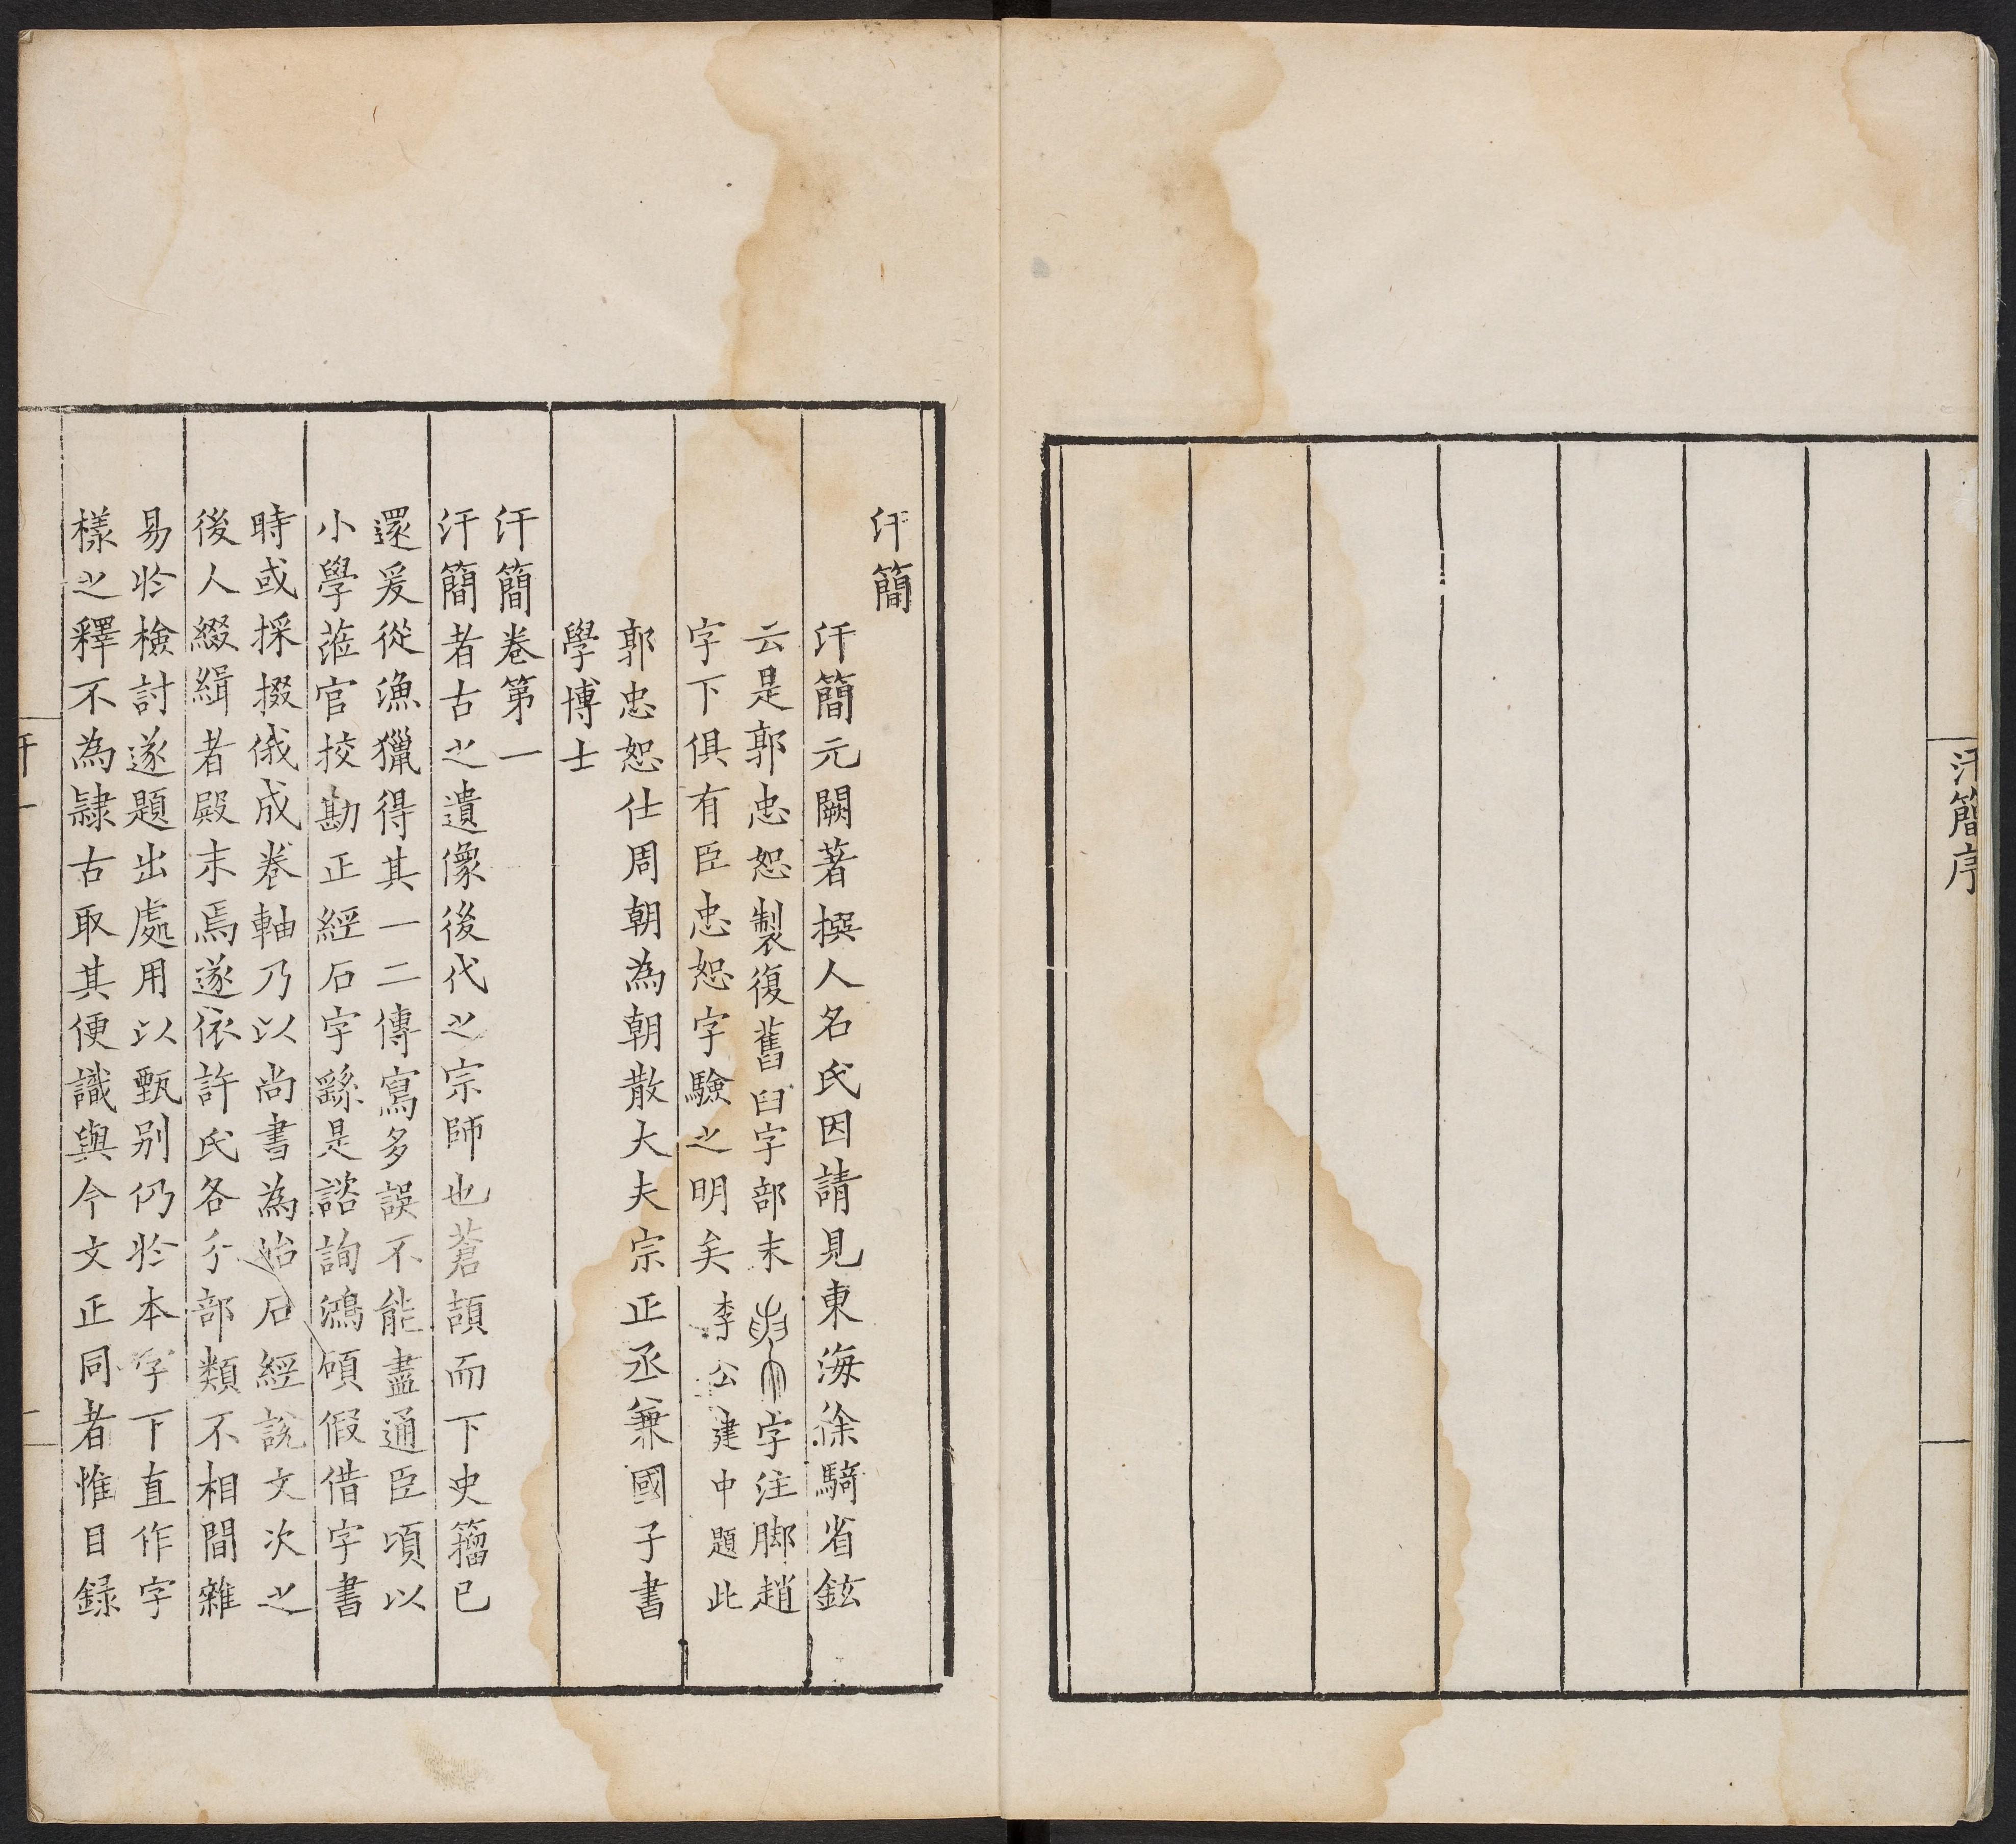 汗簡序
汗簡
汗簡元闕著撰人名氏因請見東海徐騎省鉉
云是郭忠恕製復舊臼字部末字注脚趙
字下俱有臣忠恕字驗之明矣李公建中題此
郭忠恕仕周朝為朝散大夫宗正丞兼國子書
學博士
汗簡卷第一
汗簡者古之遺像後代之宗師也蒼頡而下史籀已
還爰從漁獵得其一二傳寫多誤不能盡通臣頃以
小學蒞官挍勘正經石字繇是諮詢鴻碩假借字書
時或採掇俄成卷軸乃以尚書為始石經說文次之
後人綴緝者殿末焉遂依許氏各分部類不相間雜
易於檢討遂題出處用以甄別仍於本字下直作字
樣之釋不為隸古取其便識與今文正同者惟目録
汗一
一